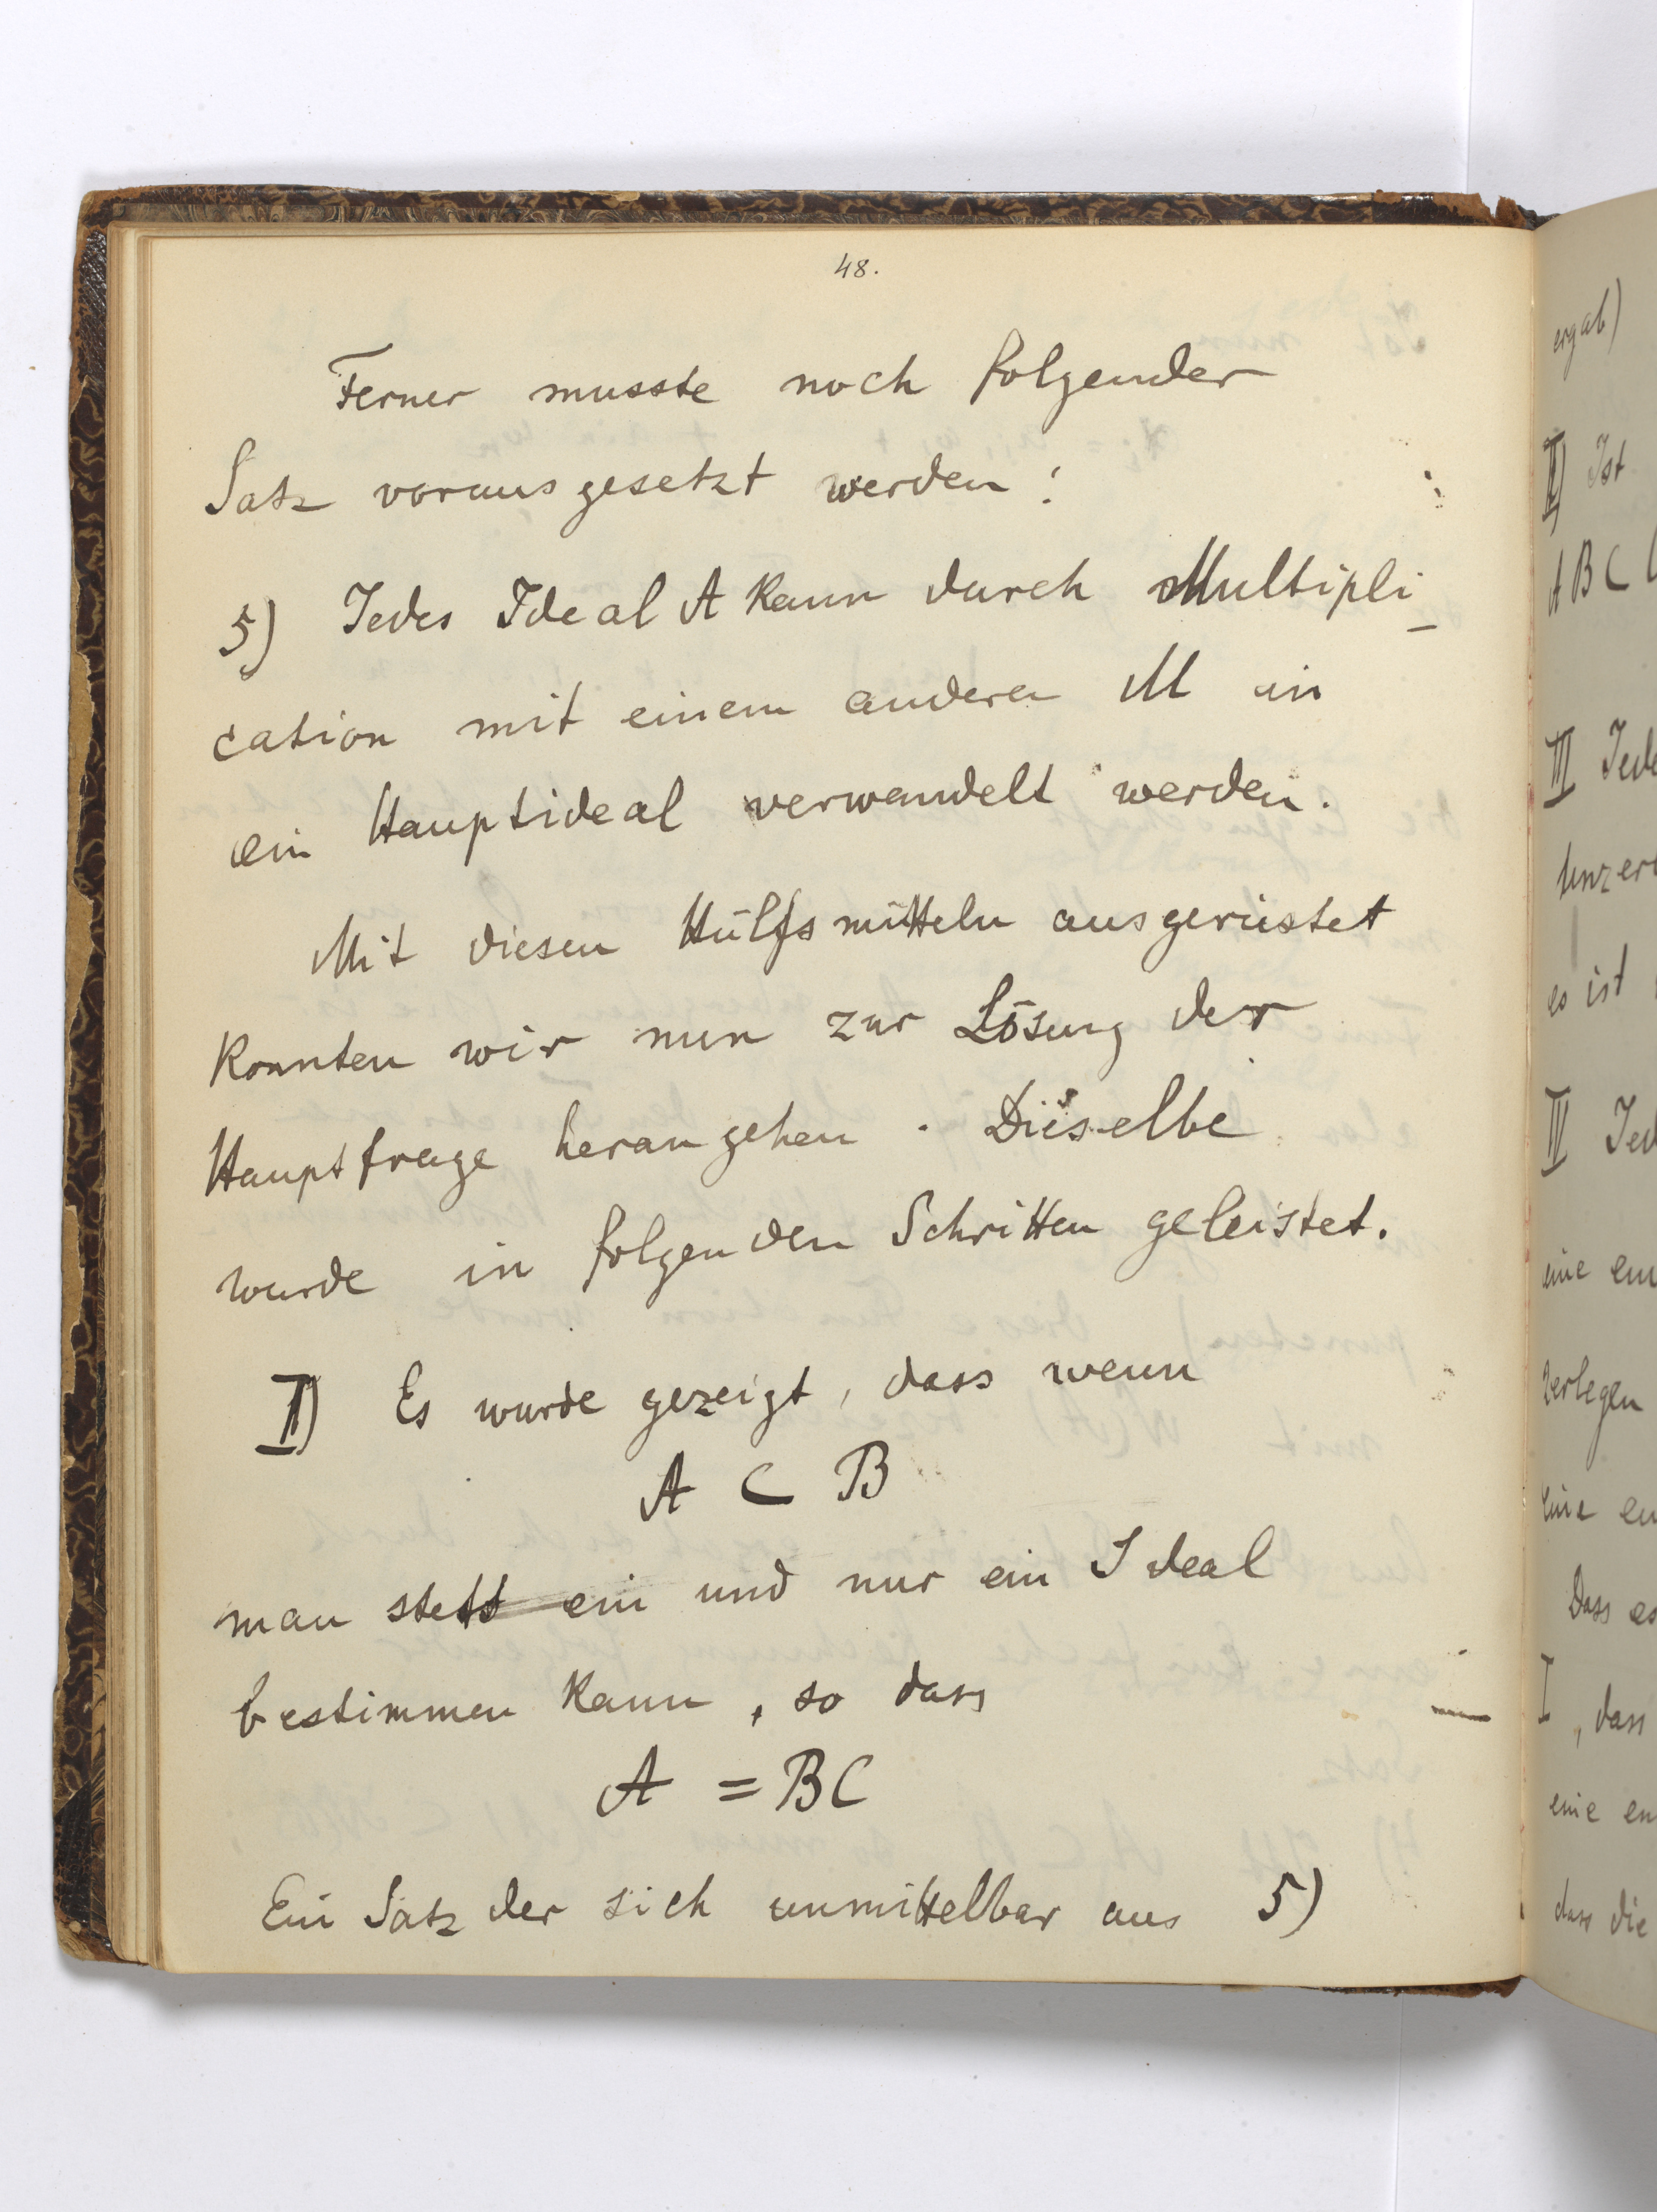 48.
Ferner musste noch folgender
Satz vorausgesetzt werden:
5) Jedes Ideal A kann durch Multipli_
cation mit einem anderen M in
ein Hauptideal verwandelt werden.
Mit diesen Hülfsmitteln ausgerüstet
konnten wir nun zur Lösung der
Hauptfrage herangehen. Dieselbe
wurde in folgenden Schritten geleistet.
I) Es wurde gezeigt, dass wenn
A ⊂ B
man stets ein und nur ein Ideal
bestimmen kann, so dass
A = BC
Ein Satz der sich unmittelbar aus 5)
ergab)
II) Ist
ABC
III Jede
unzer
es ist
IV Jed
eine
zerlegen
eine
Dass es
I, dass
eine
dass die